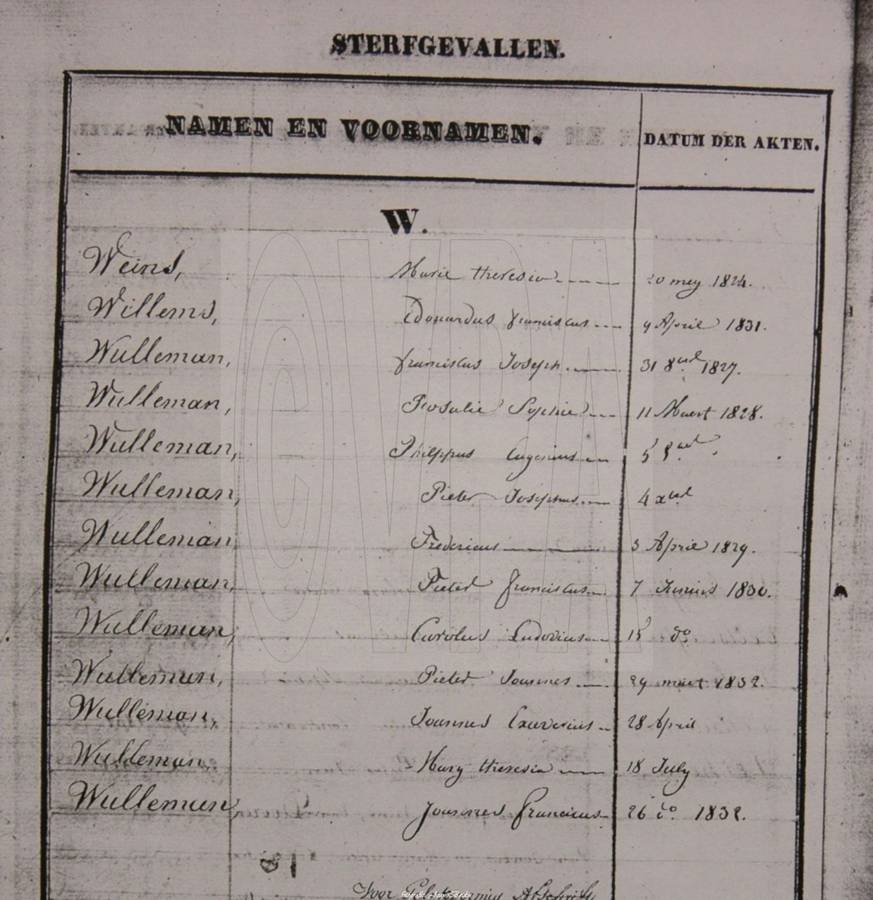 STERFGEVALLEN.
NAMEN EN VOORNAMEN. DATUM DER AKTEN.
W.
Weins, Marie theresia 20 mey 1824.
Willems, Edouardus franciscus 9 April 1831.
Wulleman, franciscus Joseph 31 8ber 1827.
Wulleman, Rosalie Sophie 11 Maert 1828.
Wulleman, Philippus Eugenius 5 8ber
Wulleman, Pieter Josephus 4 xber
Wulleman, Fredericus 3 April 1829.
Wulleman, Pieter franciscus 7 Junius 1830.
Wulleman, Carolus Ludovicus 15 do
Wulleman, Pieter Joannes 29 maert 1832.
Wulleman, Joannes Xaverius 28 April
Wulleman, Mary theresia 18 July
Wulleman, Joannes Franciscus 26 do 1832.
Voor Gelykvormig Afschrift